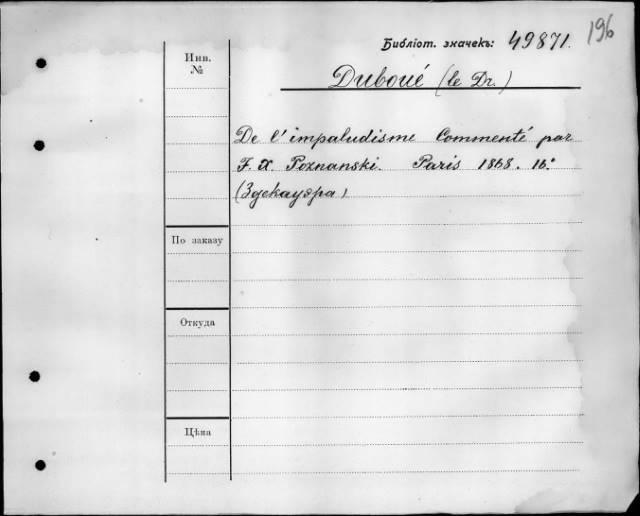 196
Библіот. значекъ: 49871.
Инв.
№
Duboué (le Dr.)
De l'impaludisme Commenté par
F. X. Poznanski. Paris 1868. 16°
(Здекауэра)
По заказу
Откуда
Цѣна